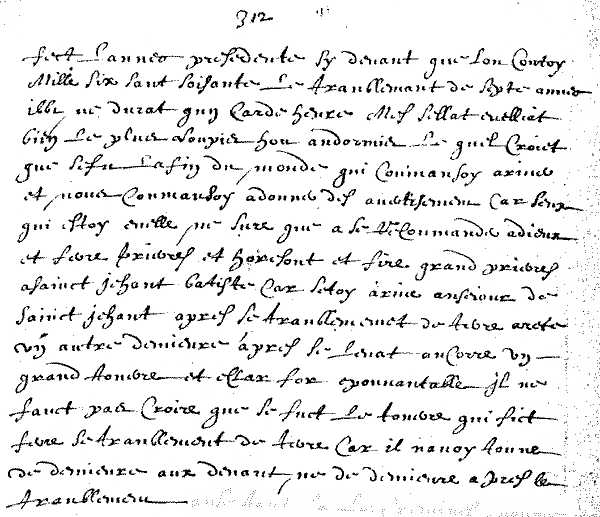 312
fect Lannee presedente sy devant que lon Contoy
Mille six sant soisante Le tranblemant de sete annee
ne durat qun Carde heure Mes sellat evelliat
bien Le plus asoupies hou andormies Le quel Croiet
que sesu Lafin du monde qui Conmansoy arive
et nous Conmansoy a donne des avertisement Car seux
qui estoy evelle ne sure que a se reCoumande a dieux
et fere prieres et hores ont et fire grand prieres
a sainct jehant batiste Car setoy arive au jour de
Sainct jehant apres se tranblememet de terre arete
vn autre demieure apres se Levat ancorre vn
grand tonere et esclar for epouvantable il ne
fauct pas Croire que se fuct Le tonerre qui fict
fere se tranblement de terre Car il navoy tonne
de demieure aux devant ne de demieure apres le
tranblement